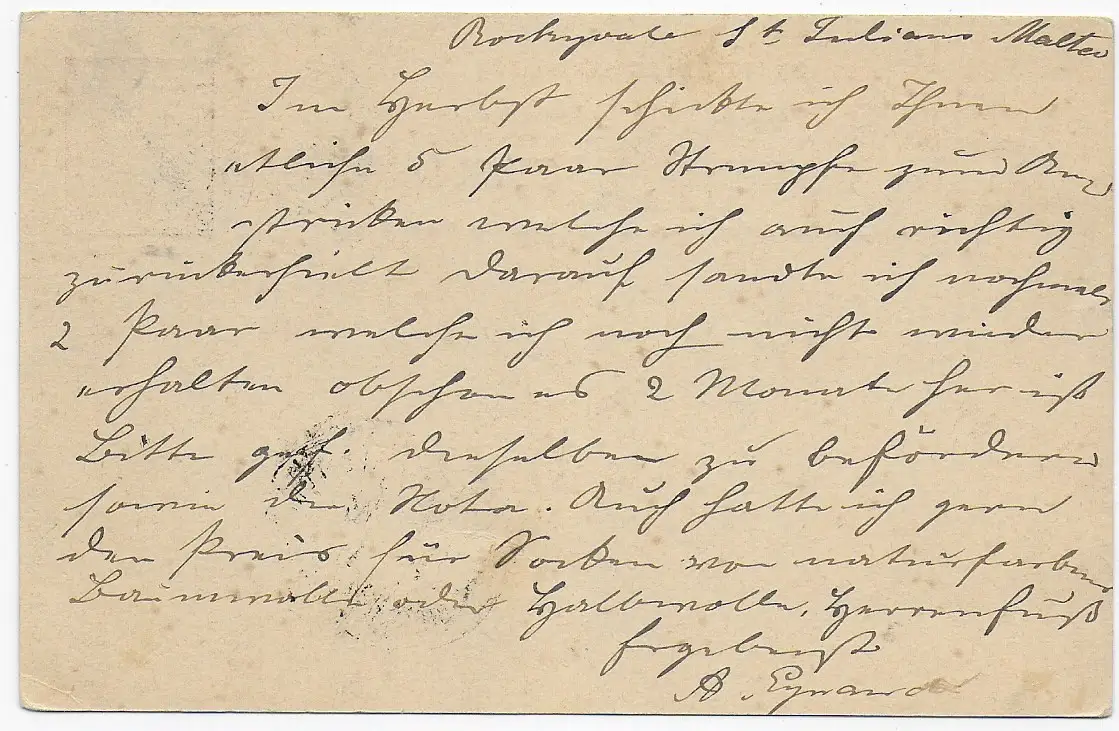 Rockyvale St Julians Malta
Im Herbst schickte ich Ihnen
etliche 5 Paar Strumpfe zum An
stricken welche ich auch richtig
zurückerhielt darauf sandte ich nochmals
2 Paar welche ich noch nicht wieder
erhalten obschon es 2 Monate her ist
Bitte gef. dieselben zu befördern
sowie die Nota. Auch hätte ich gern
den Preis für Socken von naturfarbener
Baumwolle oder Halbwolle, Herrenfuß
Ergebenst
A Eynaud